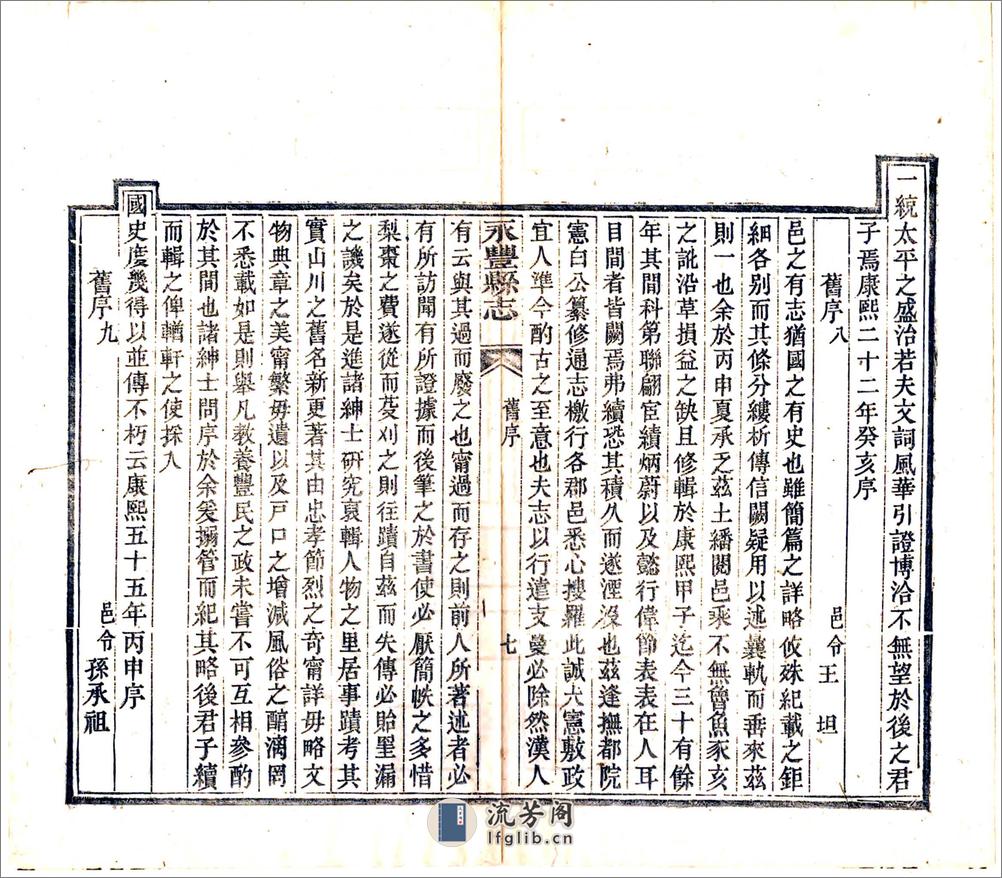 一統太平之盛治若夫文詞風華引證博洽不無望於後之君
子焉康熙二十二年癸亥序
舊序八 邑令王 坦
邑之有志猶國之有史也雖簡篇之詳略攸殊紀載之鉅
細各别而其條分縷析傳信闕疑用以述曩軌而垂來茲
則一也余於丙申夏承乏茲土繙閱邑乘不無魯魚豕亥
之訛沿革損益之缺且修輯於康熙甲子迄今三十有餘
年其間科第聯翩宦績炳蔚以及懿行偉節表表在人耳
目間者皆闕焉弗續恐其積久而遂湮沒也茲逢撫都院
憲白公纂修通志檄行各郡邑悉心搜羅此誠大憲敷政
宜人準今酌古之至意也夫志以行遠支蔓必除然漢人
永豐縣志 舊序 七
有云與其過而廢之也甯過而存之則前人所著述者必
有所訪聞有所證據而後筆之於書使必厭簡帙之多惜
梨棗之費遂從而芟刈之則往蹟自茲而失傳必貽罣漏
之譏矣於是進諸紳士研究裒輯人物之里居事蹟考其
實山川之舊名新更著其由忠孝節烈之奇甯詳毋略文
物典章之美甯繁毋遺以及戸口之增減風俗之醕漓罔
不悉載如是則舉凡教養豐民之政未嘗不可互相參酌
於其間也諸紳士問序於余爰搦管而紀其略後君子續
而輯之俾輶軒之使採入
國史庶幾得以並傳不朽云康熙五十五年丙申序
舊序九 邑令孫承祖
流芳阁
lfglib.cn